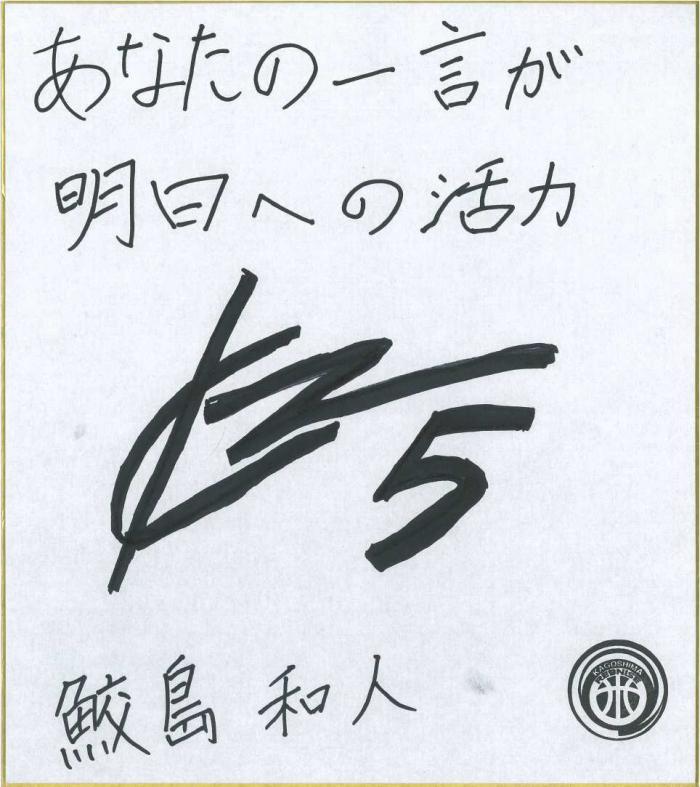 あなたの一言が
明日への活力
5
鮫島 和人
KAGOSHIMA